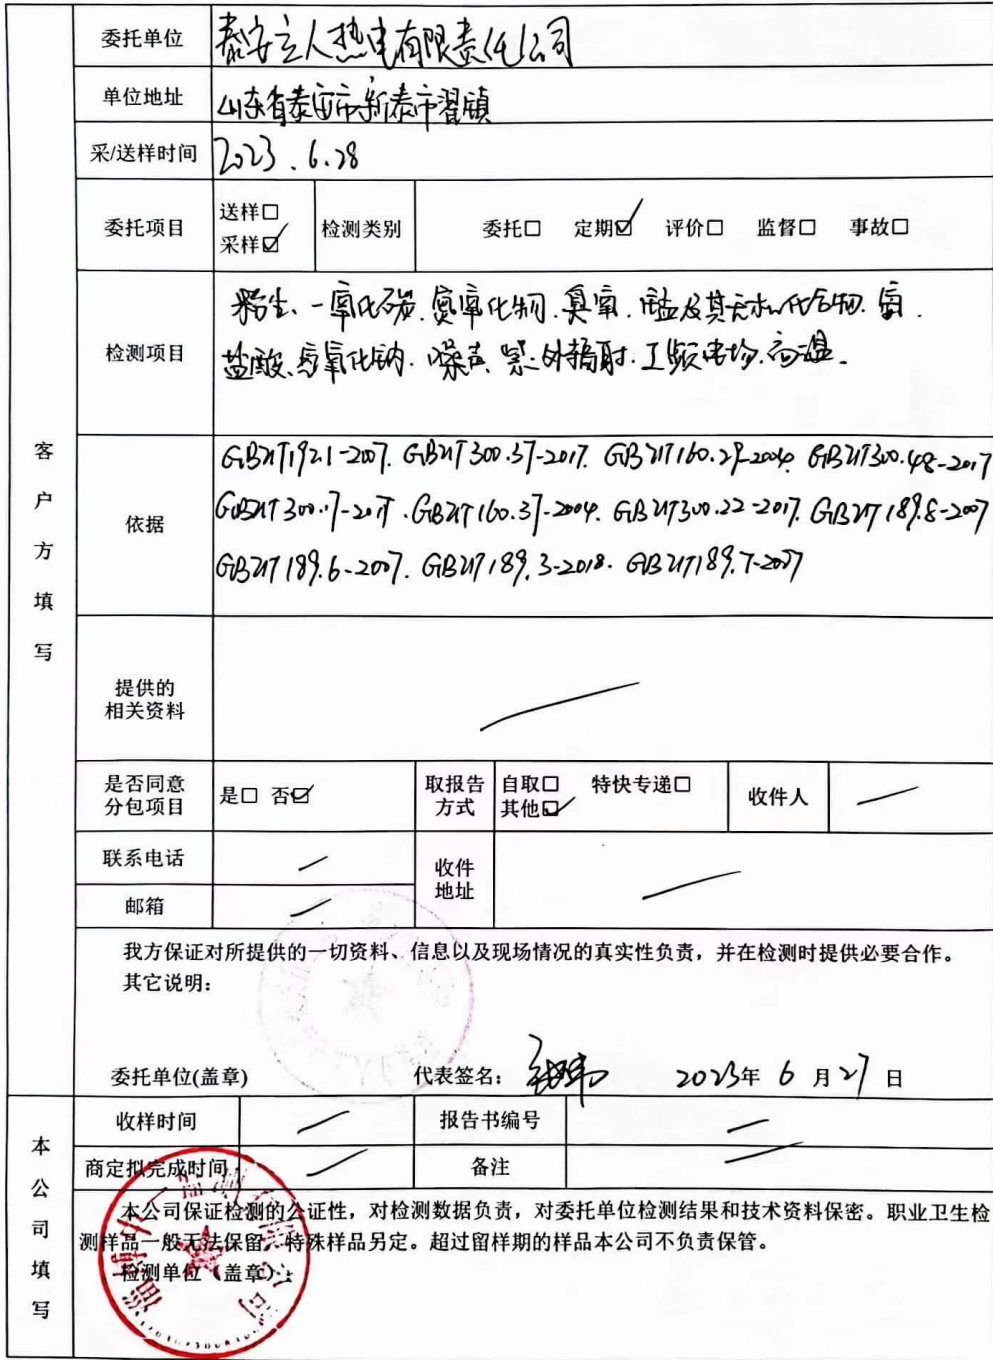 委托单位 泰安立人热电有限责任公司
单位地址 山东省泰安市新泰市翟镇
采/送样时间 2023.6.28
委托项目 送样□ 采样☑ 检测类别 委托□ 定期☑ 评价□ 监督□ 事故□
检测项目 粉尘、一氧化碳、氮氧化物、臭氧、锰及其无机化合物、氨、
盐酸、氢氧化钠、噪声、紫外辐射、工频电场、高温
客户方填写
依据 GBZ/T192.1-2007. GBZ/T300.37-2017. GBZ/T160.29-2004. GBZ/T300.48-2017
GBZ/T300.17-2017. GBZ/T160.37-2004. GBZ/T300.22-2017. GBZ/T189.8-2007
GBZ/T189.6-2007. GBZ/T189.3-2018. GBZ/T189.7-2007
提供的
相关资料
是否同意
分包项目 是□ 否☑ 取报告
方式 自取□ 特快专递□
其他☑ 收件人
联系电话 收件
地址
邮箱
我方保证对所提供的一切资料、信息以及现场情况的真实性负责，并在检测时提供必要合作。
其它说明：
委托单位(盖章) 代表签名： 2023年 6 月 27 日
本公司填写
收样时间 报告书编号
商定拟完成时间 备注
本公司保证检测的公证性，对检测数据负责，对委托单位检测结果和技术资料保密。职业卫生检
测样品一般无法保留，特殊样品另定。超过留样期的样品本公司不负责保管。
检测单位（盖章）：